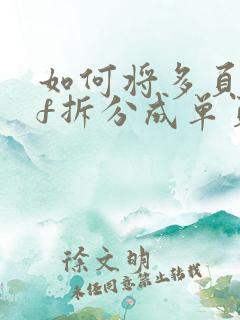 如何将多页
f拆分成单
徐文明
未经同意禁止转载